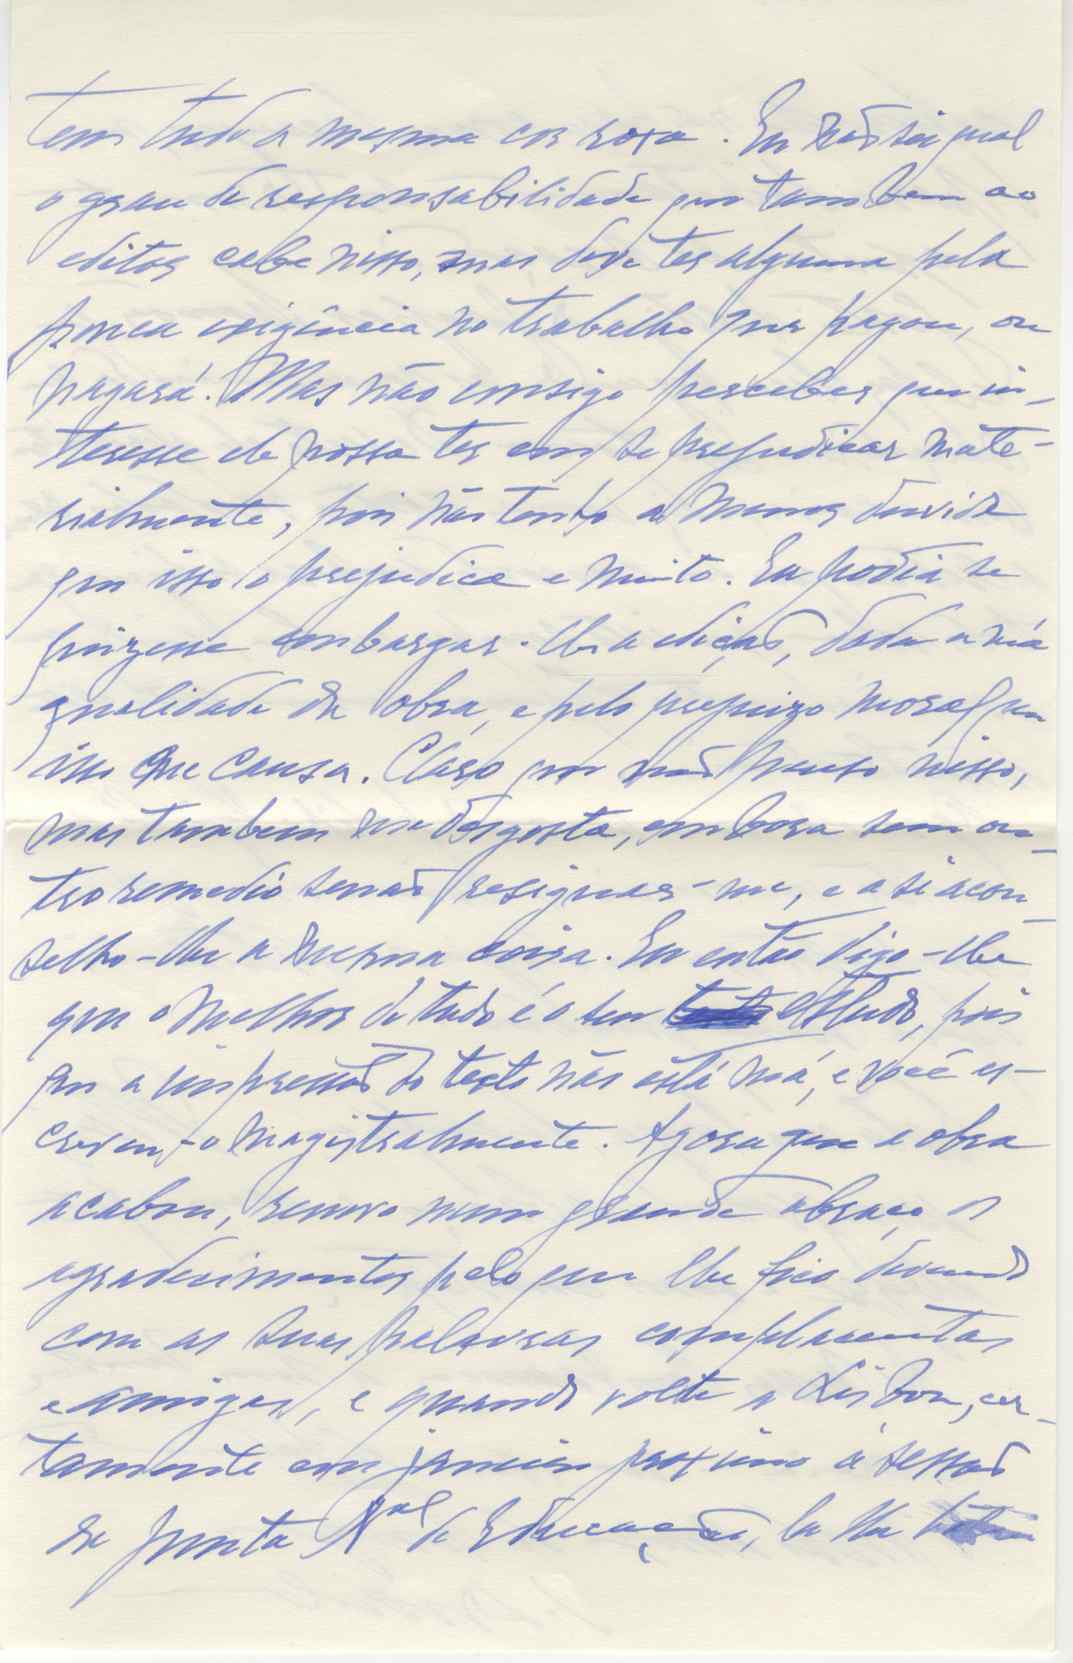 tem tudo a mesma cor roxa. Eu não sei qual
o grau de responsabilidade que tambem ao
editor cabe nisso, mas deve ter alguma pela
pouca exigência no trabalho que pagou, ou
pagará! Mas não consigo perceber que in-
teresse ele possa ter em se prejudicar mate-
rialmente, pois não tenho a menor duvida
que isso o prejudica e muito. Eu podia se
quizesse embargar-lhe a edição, dada a má
qualidade da obra, e pelo prejuizo moral que
isso me causa. Claro que não penso nisso,
mas tambem me desgosta, embora sem ou-
tro remedio senão resignar-me, e a si acon-
selho-lhe a mesma coisa. Eu então digo-lhe
que o melhor de tudo é o seu estudo, pois
que a impressão do texto não está má, e você es-
creveu-o magistralmente. Agora que a obra
acabou, renovo num grande abraço os
agradecimentos pelo que lhe fico devendo
com as suas palavras complacentes
e amigas, e quando volte a Lisboa, cer-
tamente em janeiro proximo á sessão
da Junta Nal de Educação, la lhe